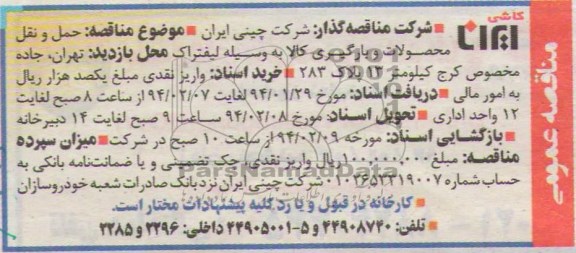 مناقصه عمومی
کاشی
ایرانا
■ شرکت مناقصه‌گذار: شرکت چینی ایران ■ موضوع مناقصه: حمل و نقل
محصولات و بارگیری کالا به وسیله لیفتراک محل بازدید: تهران، جاده
مخصوص کرج کیلومتر ۱۳ پلاک ۲۸۳ ■ خرید اسناد: واریز نقدی مبلغ یکصد هزار ریال
به امور مالی ■ دریافت اسناد: مورخ ۹۴/۰۱/۲۹ لغایت ۹۴/۰۲/۰۷ از ساعت ۸ صبح لغایت
۱۲ واحد اداری ■ تحویل اسناد: مورخ ۹۴/۰۲/۰۸ ساعت ۹ صبح لغایت ۱۴ دبیرخانه
■ بازگشایی اسناد: مورخه ۹۴/۰۲/۰۹ از ساعت ۱۰ صبح در شرکت ■ میزان سپرده
مناقصه: مبلغ ۱۰۰,۰۰۰,۰۰۰ ریال واریز نقدی، چک تضمینی و یا ضمانت‌نامه بانکی به
حساب شماره ۰۱۰۲۶۵۲۳۱۹۰۰۷ شرکت چینی ایران نزد بانک صادرات شعبه خودروسازان
■ کارخانه در قبول و یا رد کلیه پیشنهادات مختار است.
■ تلفن: ۴۴۹۰۸۷۴۰ و ۵-۴۴۹۰۵۰۰۱ داخلی: ۲۲۹۶ و ۲۲۸۵
ParsNamadData